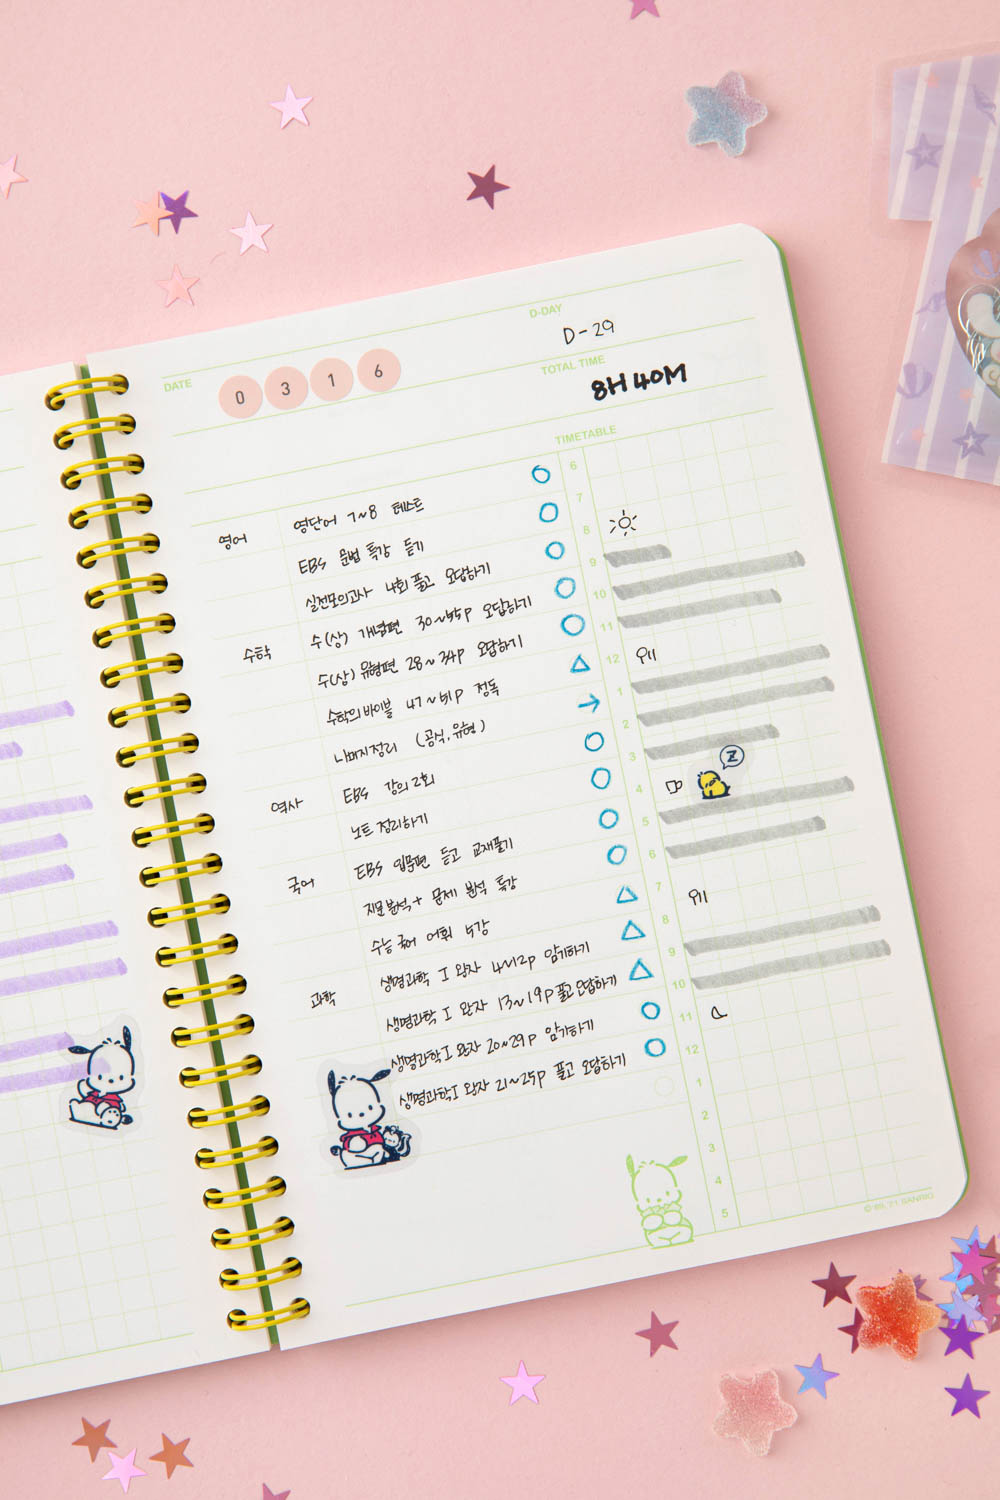 D-DAY
D-29
DATE
0 3 1 6
TOTAL TIME
8H 40M
TIMETABLE
영어 영단어 7~8 테스트
EBS 문법 특강 듣기
실전모의고사 4회 풀고 오답하기
수학 수(상) 개념편 30~45p 오답하기
수(상) 유형편 28~34p 오답하기
수학의 바이블 47~51p 정독
나머지 정리 (공식, 유형)
역사 EBS 강의 2회
노트 정리하기
국어 EBS 입문편 듣고 교재풀기
지문분석 + 문제 분석 특강
수능 국어 어휘 4강
과학 생명과학 I 완자 4~12p 암기하기
생명과학 I 완자 13~19p 풀고 오답하기
생명과학 I 완자 20~29p 암기하기
생명과학 I 완자 21~25p 풀고 오답하기
6
7
8
9
10
11
12
1
2
3
4
5
6
7
8
9
10
11
12
1
2
3
4
5
Z
© 89, 21 SANRIO